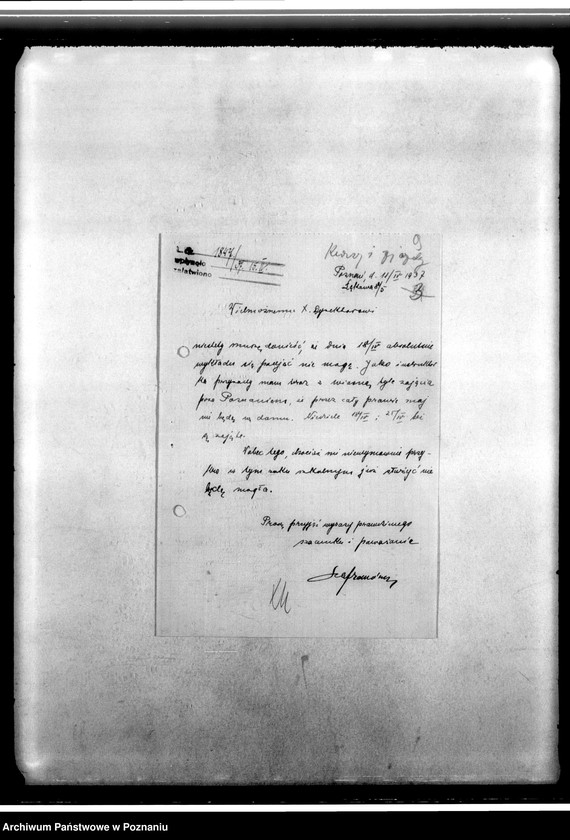 1847/
wpłynęło
załatwiono
9
Kursy i zjazdy
Poznań, d. 11/IV 1937
Łąkowa 8/5
Wielmożnemu X. Dyrektorowi
niestety muszę donieść, iż dnia 18/IV absolutnie
wykładu się podjąć nie mogę. Jako instruktor
ka przyrody mam teraz z wiosną tyle zajęcia
poza Poznaniem, iż przez cały prawie maj
nie będę w domu. Niedziele 18/IV i 25/IV też
są zajęte.
Wobec tego, chociaż mi niewymownie przy-
kro w tym roku szkolnym już służyć nie
będę mogła.
Proszę przyjąć wyrazy prawdziwego
szacunku i poważania
Archiwum Państwowe w Poznaniu